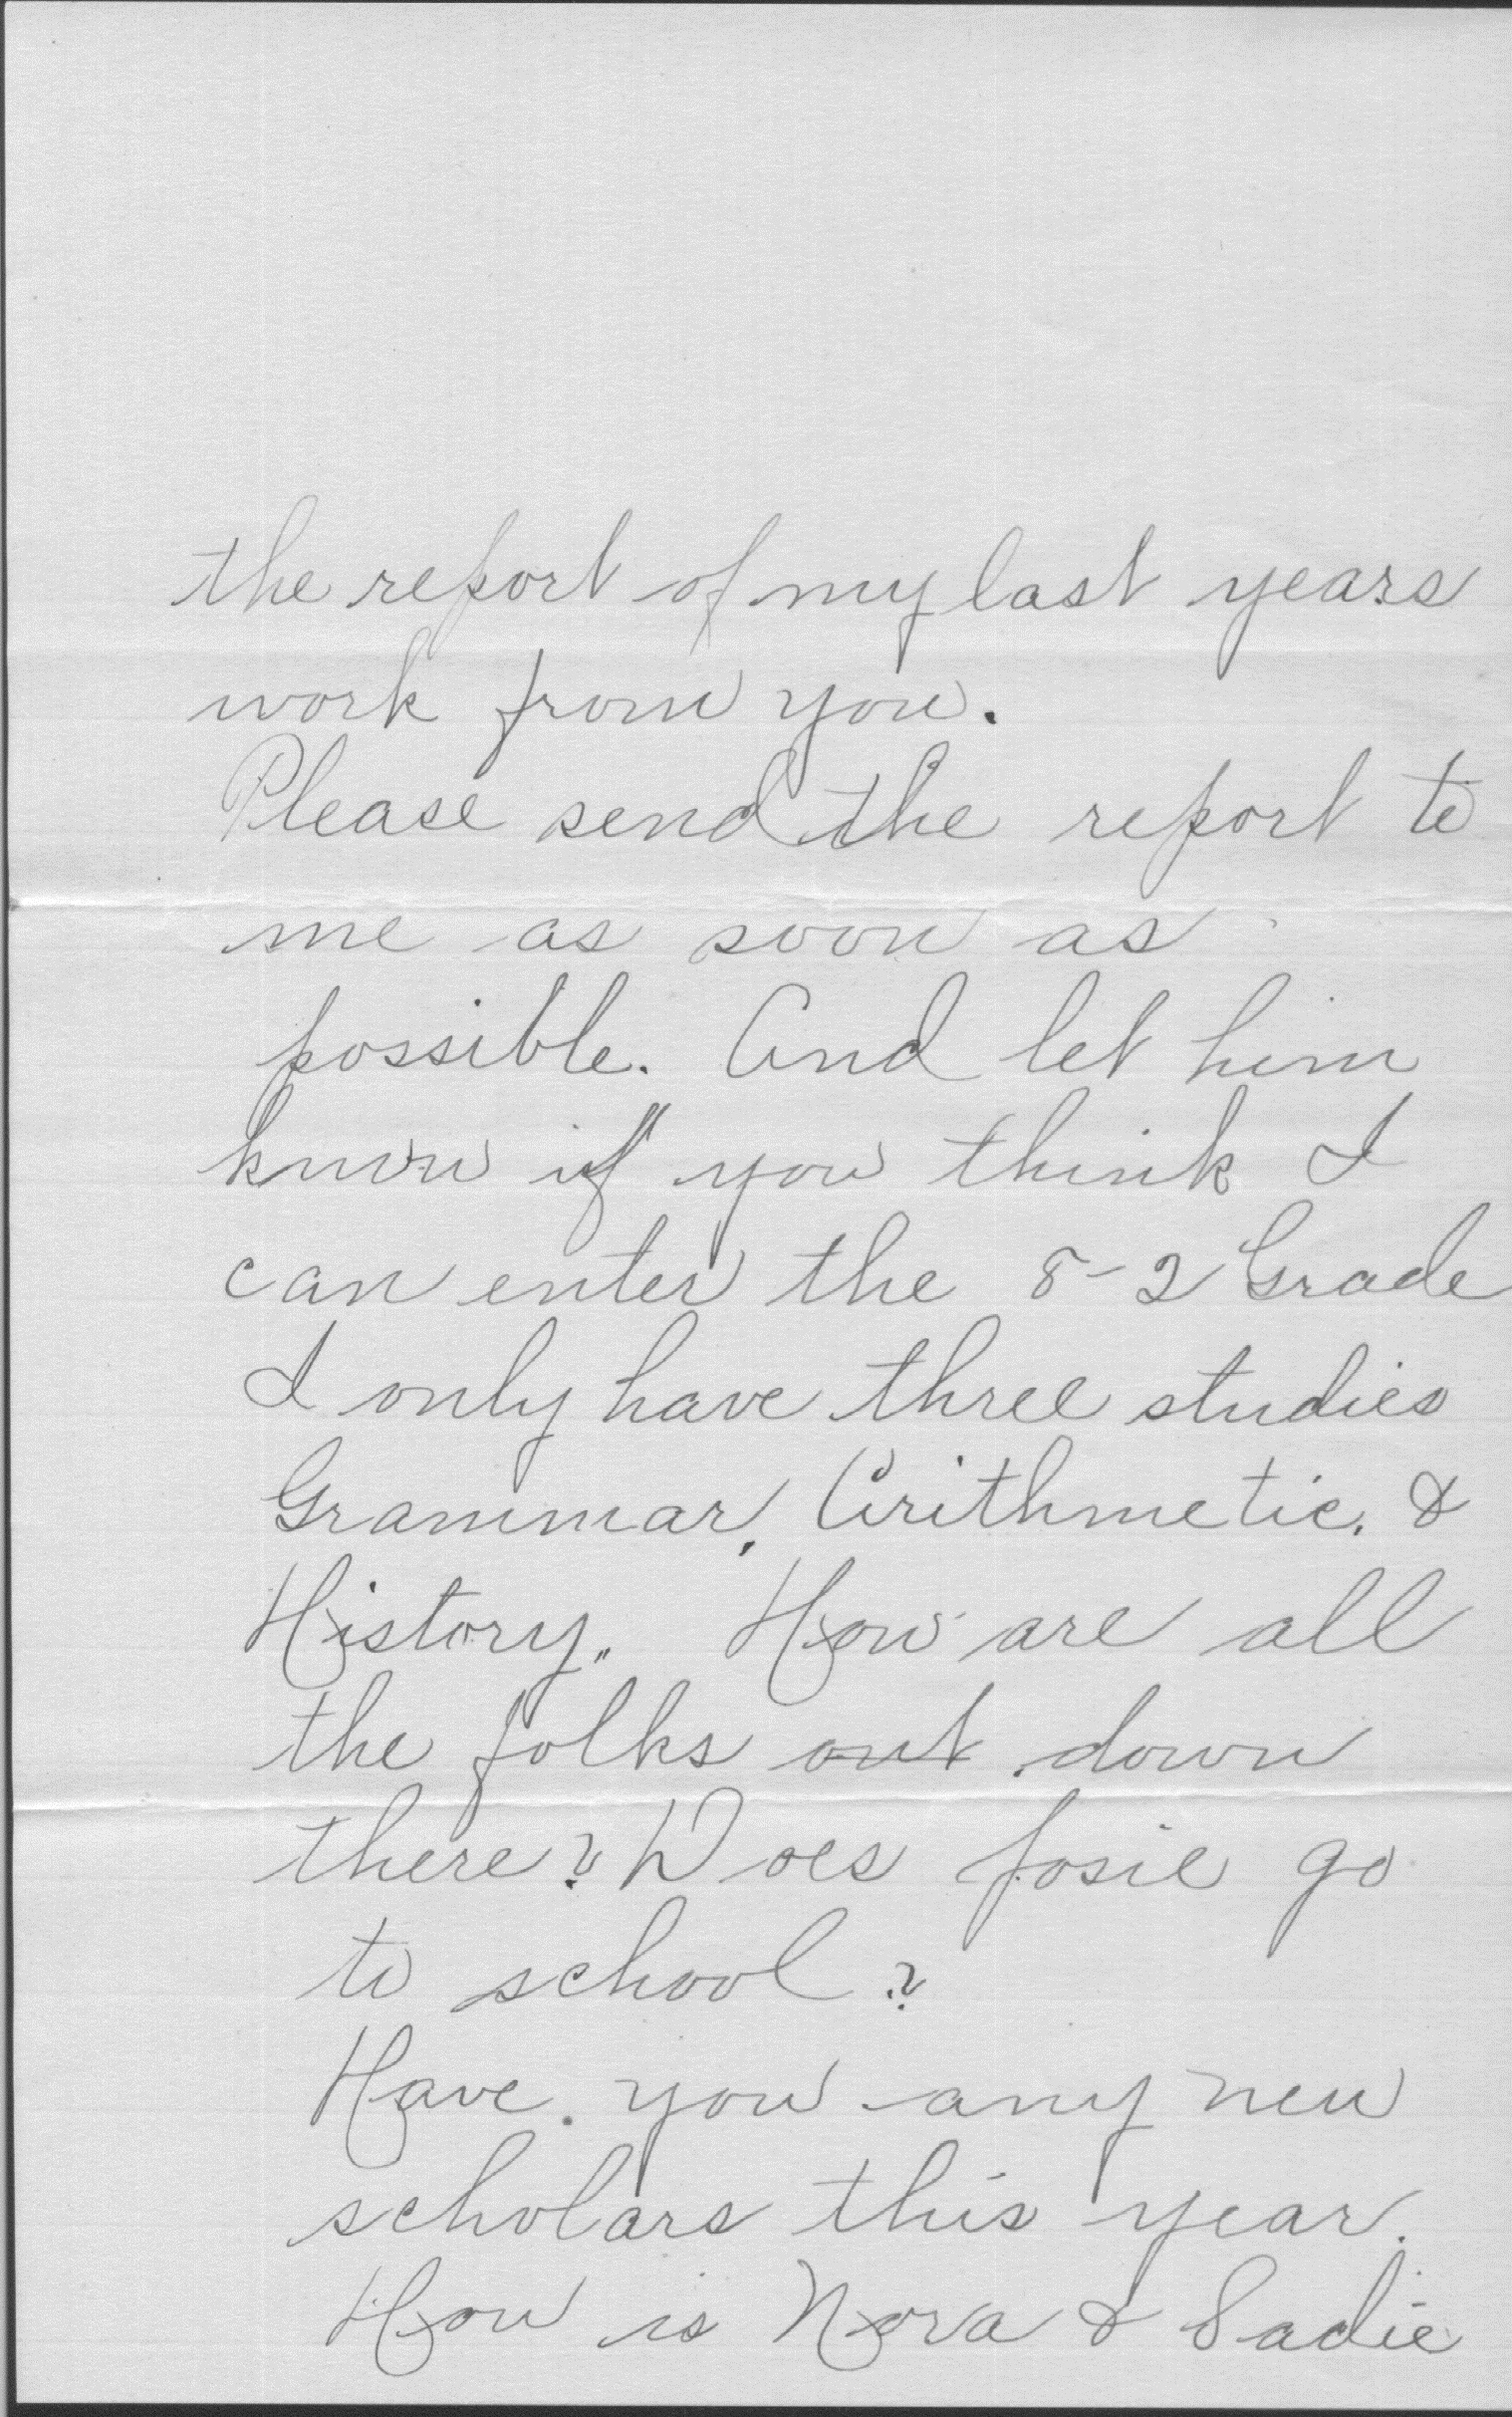 the report of my last years
work from you.
Please send the report to
me as soon as
possible. And let him
know if you think I
can enter the 8-2 Grade
I only have three studies
Grammar, Arithmetic, &
History. How are all
the folks out down
there? Does Josie go
to school?
Have you any new
scholars this year.
How is Nora & Sadie